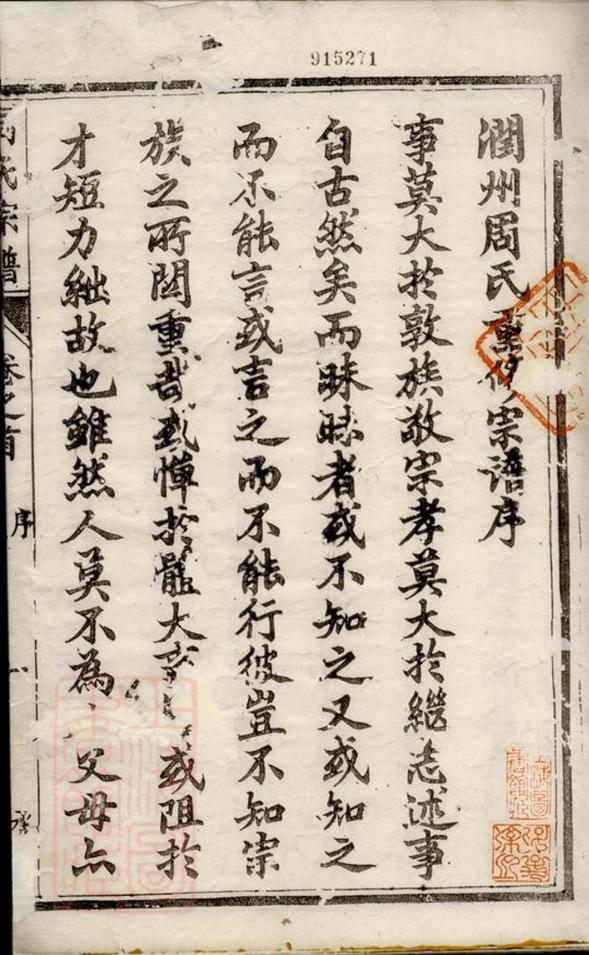 915271
潤州周氏重修宗譜序
事莫大於敦族敬宗孝莫大於繼志述事
自古然矣而昧昧者或不知之又或知之
而不能言或言之而不能行彼豈不知宗
族之所関重哉或憚於體大或阻於
才短力絀故也雖然人莫不為父母亦
周氏宗譜 卷之首 序 一